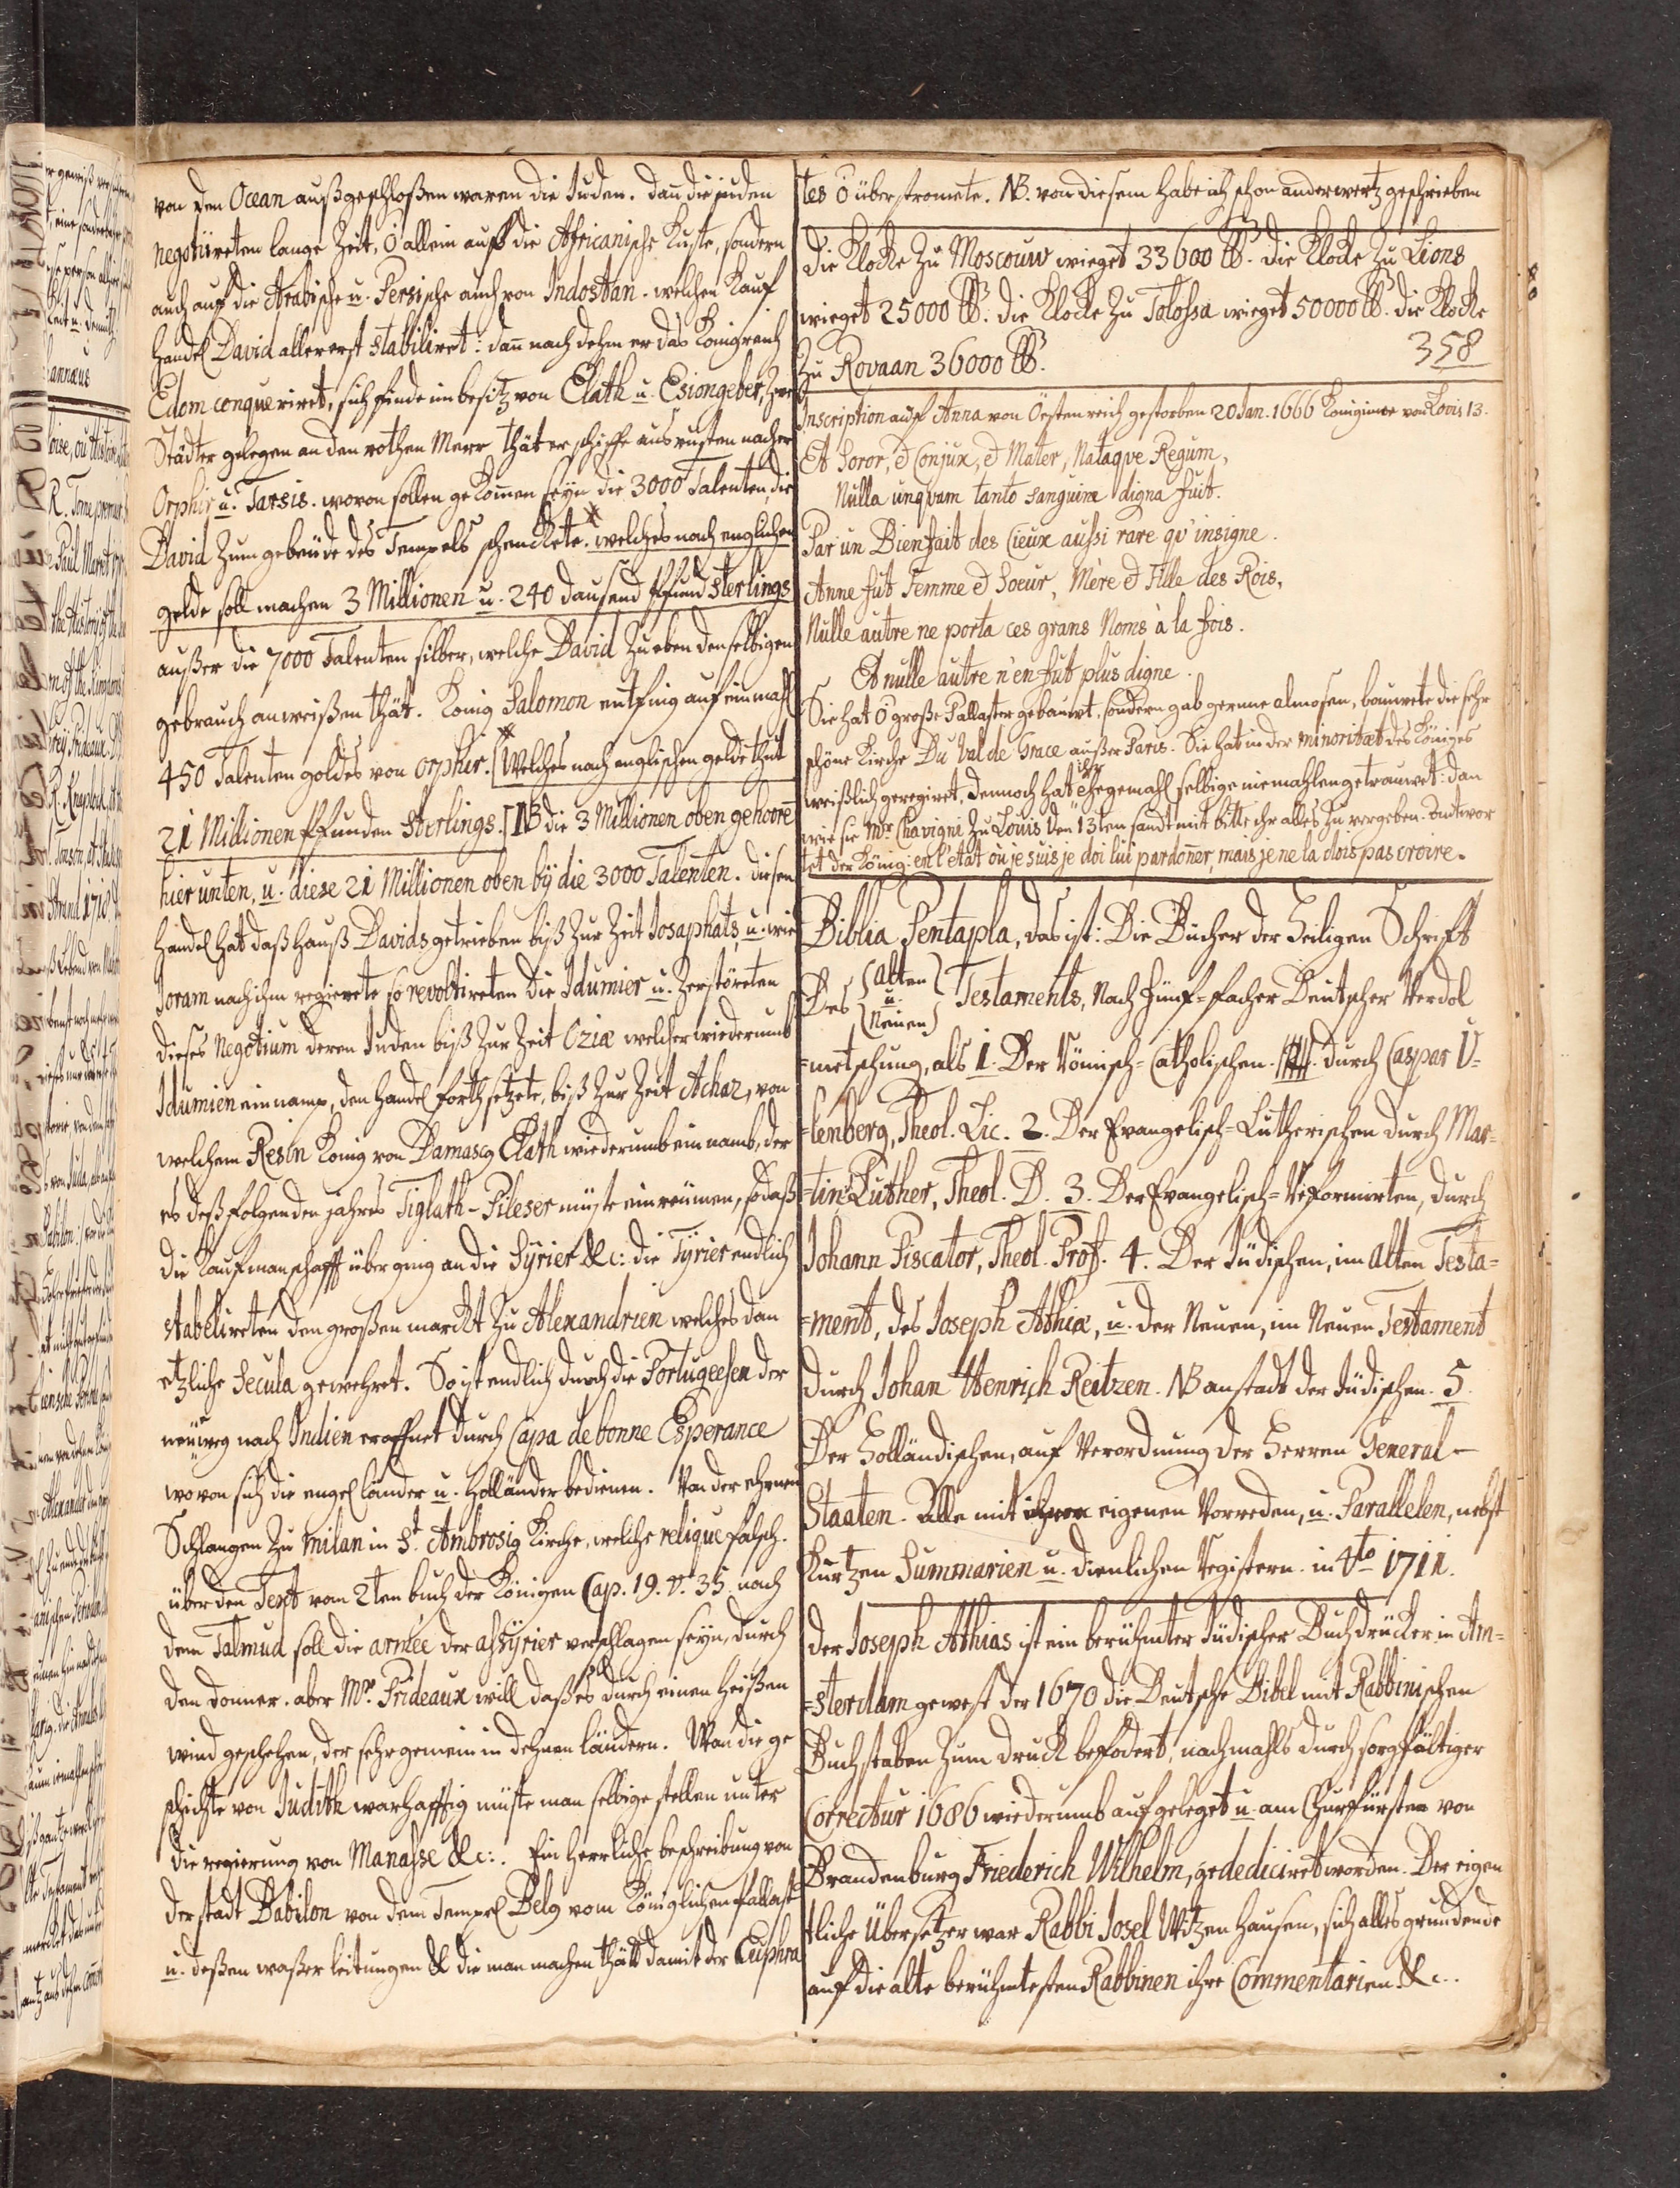 von den Ocean außgeschloßen waren die Juden. dan̄ die juden
negotiireten lange Zeit, ō allein auff die Africanische Kuste, sondern
auch auf die Arabische u. Persische auch von Indostan. welchen Kauf
handel David allererst stabiliret: dan̄ nach dehm er das Konigreich
Edom conqueriret, sich finde im besitz von Elath u. Esiongeber, zwe
Städter gelegen an den rothen Meer thäter schiffe ausrusten nacher
Orphir u. Tarsis. wovon sollen gekom̄en seyn die 3000 Talenten, die
David zum gebeude des Tempels schenckete. welches nach englischen
gelde soll machen 3 Millionen u. 240 dausend Pfund Sterlings
außer die 7000 Talenten silber, welche David zu eben denselbigen
gebrauch anweißen thät. König Salomon entfing auf einmahl
450 Talenten goldes von Orphir. [Welches nach englischen gelde thut
21 Millionen Pfunden Sterlings.] NB die 3 Millionen oben gehoren̄
hier unten, u. diese 21 Millionen oben bÿ die 3000 Talenten. diesen
handel hat daß Hauß Davids getrieben biß zur Zeit Josaphats, u. wie
Joram nach ihm regierete so revoltireten die Idumier u. zerstöreten
dieses Negotium deren Juden biß zur Zeit Oziæ welcher wiederumb
Idumien einnamp, den handel forthsetzete, biß zur Zeit Achaz, von
welchem Resin König von Damasco Elath wiederumb ein namb, der
es deß folgenden jahres Tiglath-Pileser müste einreumen, sodaß
die Kaufmanschafft überging an die Syrier &c: die Tyrier endlich
stabelireten den großen marckt zu Alexandrien welches dan
etzliche Secula gewehret. So ist endlich durch die Portugeesen der
neuweg nach Indien eroffnet durch Capa de bonne Esperance
wovon sich die engelländer u. Holländer bedienen. Von der ehrnen
Schlangen zu Milan in St. Ambrosig Kirche, welche relique falsch.
über den Text vom 2ten buch der Königen Cap. 19. v. 35. nach
dem Talmud soll die armée der assyrier verschlagen seyn, durch
den donner. aber Mr. Prideaux will daß es durch einen heißen
wind geschehen, der sehr gemein in dehnen ländern. Wan die ge
schichte von Judith warhafftig müste man selbige stellen unter
die regierung von Manasse &c:. Ein Herrliche beschreibung von
der stadt Babilon von dem Tempel Belg vom Königlichen Pallast
u. deßen waßerleitungen &c die man machen thätt damit der Euphra
tes ō überstromete. NB. von diesem habe ich schon anderwertz geschrieben
Die Klocke zu Moscouw wieget 33600 lb. die Klocke zu Lions
wieget 25000 lb. die Klocke zu Tolossa wieget 50000 lb. die Klocke
zu Rovaan 36000 lb.
358
Inscription auf Anna von Öestenreich gestorben 20 Jan. 1666 Koniginne von Lovis 13.
Et Soror, & Conjux, & Mater, Nataqve Regum,
Nulla unqvam tanto sanguine digna fuit.
Par un Bienfait des Cieux aussi rare qu'insigne.
Anne fut Femme & Soeur, Mère & Fille des Rois,
Nulle autre ne porta ces grans Noms à la fois.
Et nulle autre n'en fut plus digne.
Sie hat ō große Pallaster gebauwt, sondern gab gerne almosen, bauwete die sehr
schöne Kirche Du Val de Grace außer Paris. Sie hat in der minoritæt des Königes
weißlich geregiret, dennoch hat ihr ehegemahl selbige niemahlen getrauwet: dan
wie sie Mr. Chavigni zu Louis den 13ten sandt mit bitte ihr alles zu vergeben. andtwor
tet der König: en l'etat où je suis je doi lui pardoñer, mais je ne la dois pas croire.
Biblia Pentapla, das ist: Die Bücher der Heiligen Schrift
Des (Alten u. Neuen) Testaments, Nach Fünf-facher Deutscher Verdol
=metschung, als 1. Der Römisch-Catholischen. durch Caspar U-
=lenberg, Theol. Lic. 2. Der Evangelisch-Lutherischen durch Mar=
=tin Luther, Theol. D. 3. Der Evangelisch-Reformirten, durch
Johann Piscator, Theol. Prof. 4. Der Jüdischen, im Alten Testa=
=ment, des Joseph Athiæ, u. der Neuen, im Neuen Testament
durch Johan Henrich Reitzen. NB anstadt der Jüdischen. 5.
Der Holländischen, auf Verordnung der Herren General-
Staaten. Alle mit ihren eigenen Vorreden, u. Parallelen, nebst
Kurtzen Summarien u. dienlichen Registern. in 4to 1711.
der Joseph Athias ist ein berühmter Jüdischer Buchdrücker in Am=
=sterdam gewest der 1670 die Deutsche Bibel mit Rabbinischen
Buchstaben zum druck befodert, nachmahls durch sorgfältiger
Correctur 1686 wiederumb aufgeleget u. am Churfürsten von
Brandenburg Friederich Wilhelm, gededicirt worden. Der eigen
tliche Übersetzer war Rabbi Josel Witzenhausen, sich alles grundende
auf die alte berühmtesten Rabbinen ihre Commentarien &c..